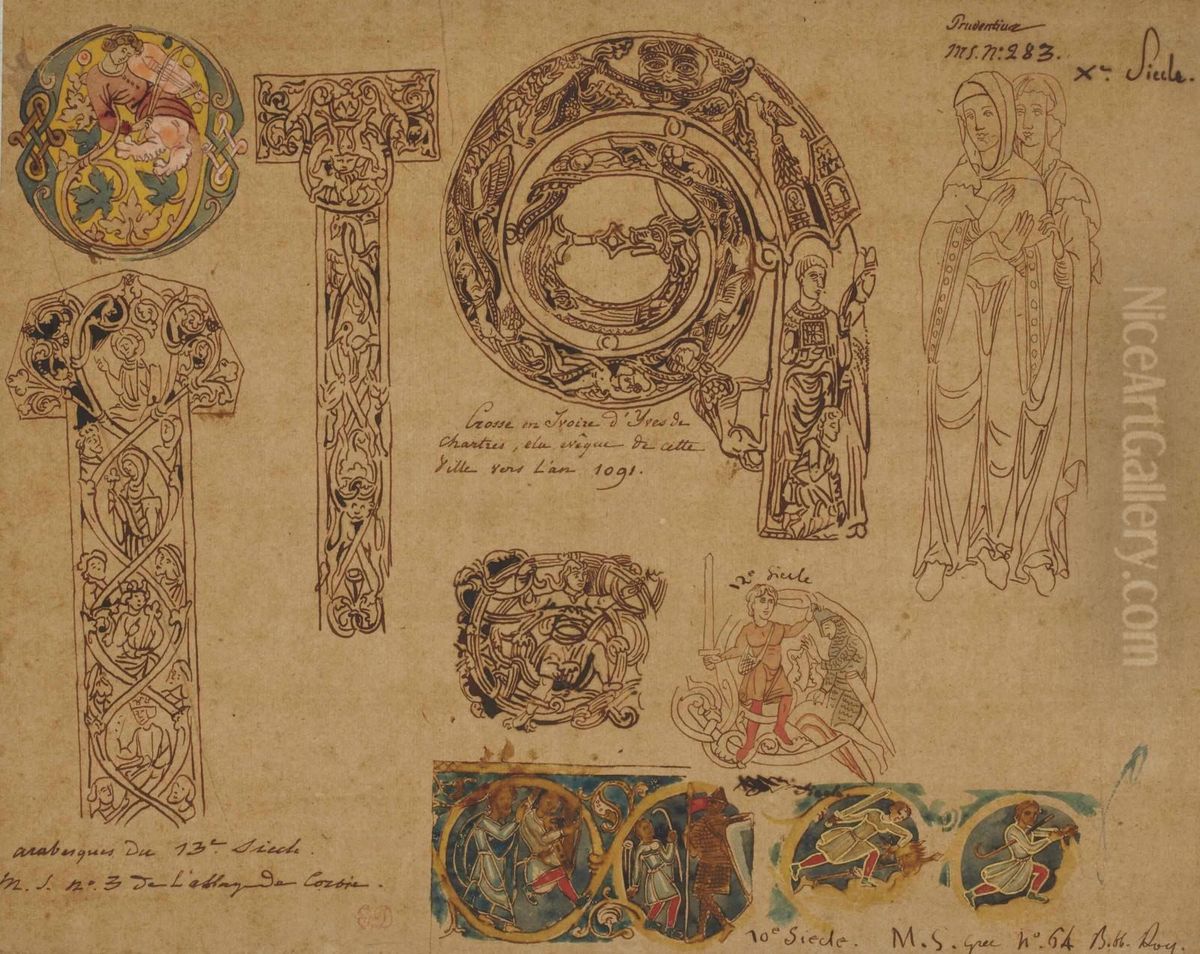 Prudentius
M.S. Nº 283.
Xe Siecle.
Crosse en Ivoire d'Yves de
Chartres, elu evêque de cette
Ville vers l'an 1091.
12e Siecle
arabesques du 13e Siecle.
M.S. nº 3 de l'abbaye de Corbie.
10e Siecle. M.S. grec Nº 64 Bibb. Roy.
ED
NiceArtGallery.com